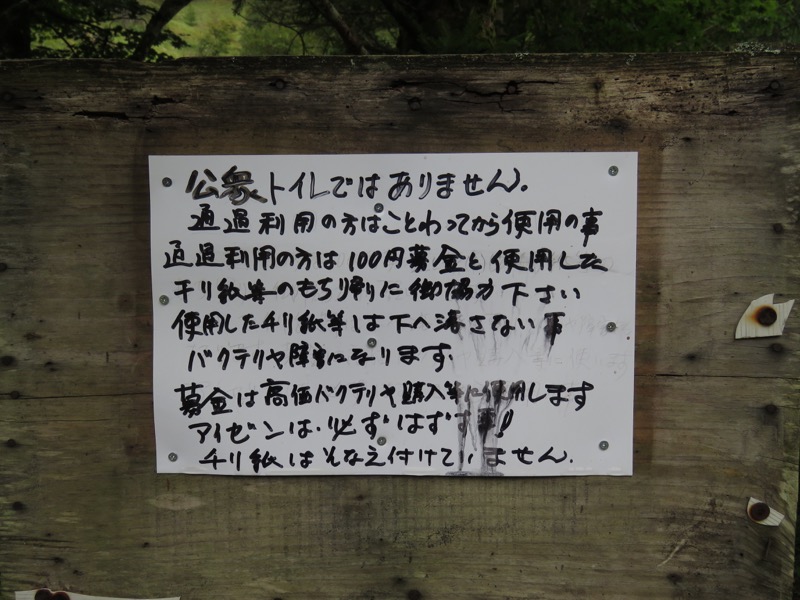 公衆トイレではありません。
通過利用の方はことわってから使用の事
通過利用の方は100円募金と使用した
チリ紙等のもち帰りに御協力下さい
使用したチリ紙等は下へ落さない事
バクテリヤ障害になります。
募金は高価バクテリヤ購入等に使用します
アイゼンは、必ずはずす事!
チリ紙はそなえ付けていません。